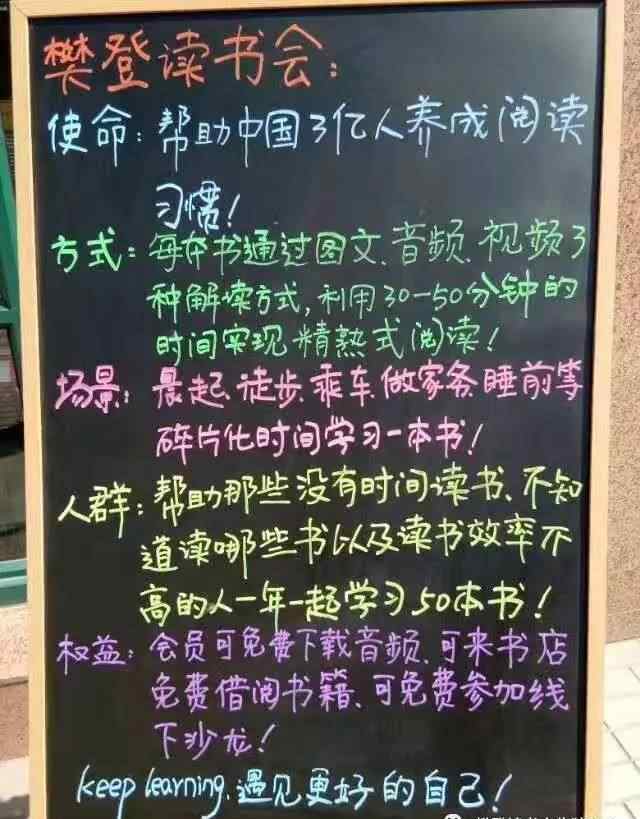 樊登读书会：
使命：帮助中国3亿人养成阅读
习惯！
方式：每本书通过图文、音频、视频3
种解读方式，利用30-50分钟的
时间实现精熟式阅读！
场景：晨起、徒步、乘车、做家务、睡前等
碎片化时间学习一本书！
人群：帮助那些没有时间读书、不知
道读哪些书以及读书效率不
高的人一年一起学习50本书！
权益：会员可免费下载音频、可来书店
免费借阅书籍、可免费参加线
下沙龙！
keep learning.遇见更好的自己！